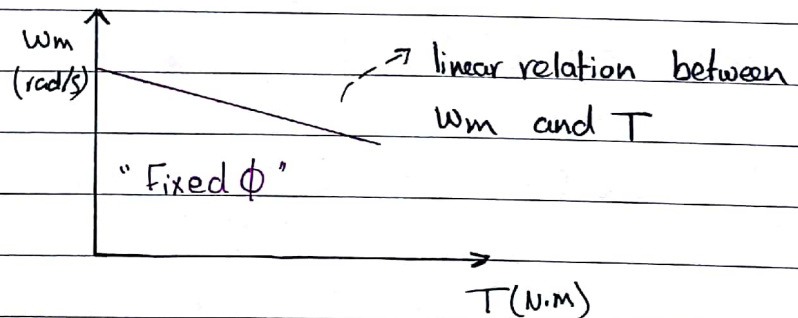 Wm
(rad/s)
linear relation between
Wm and T
"Fixed ϕ"
T(N.M)